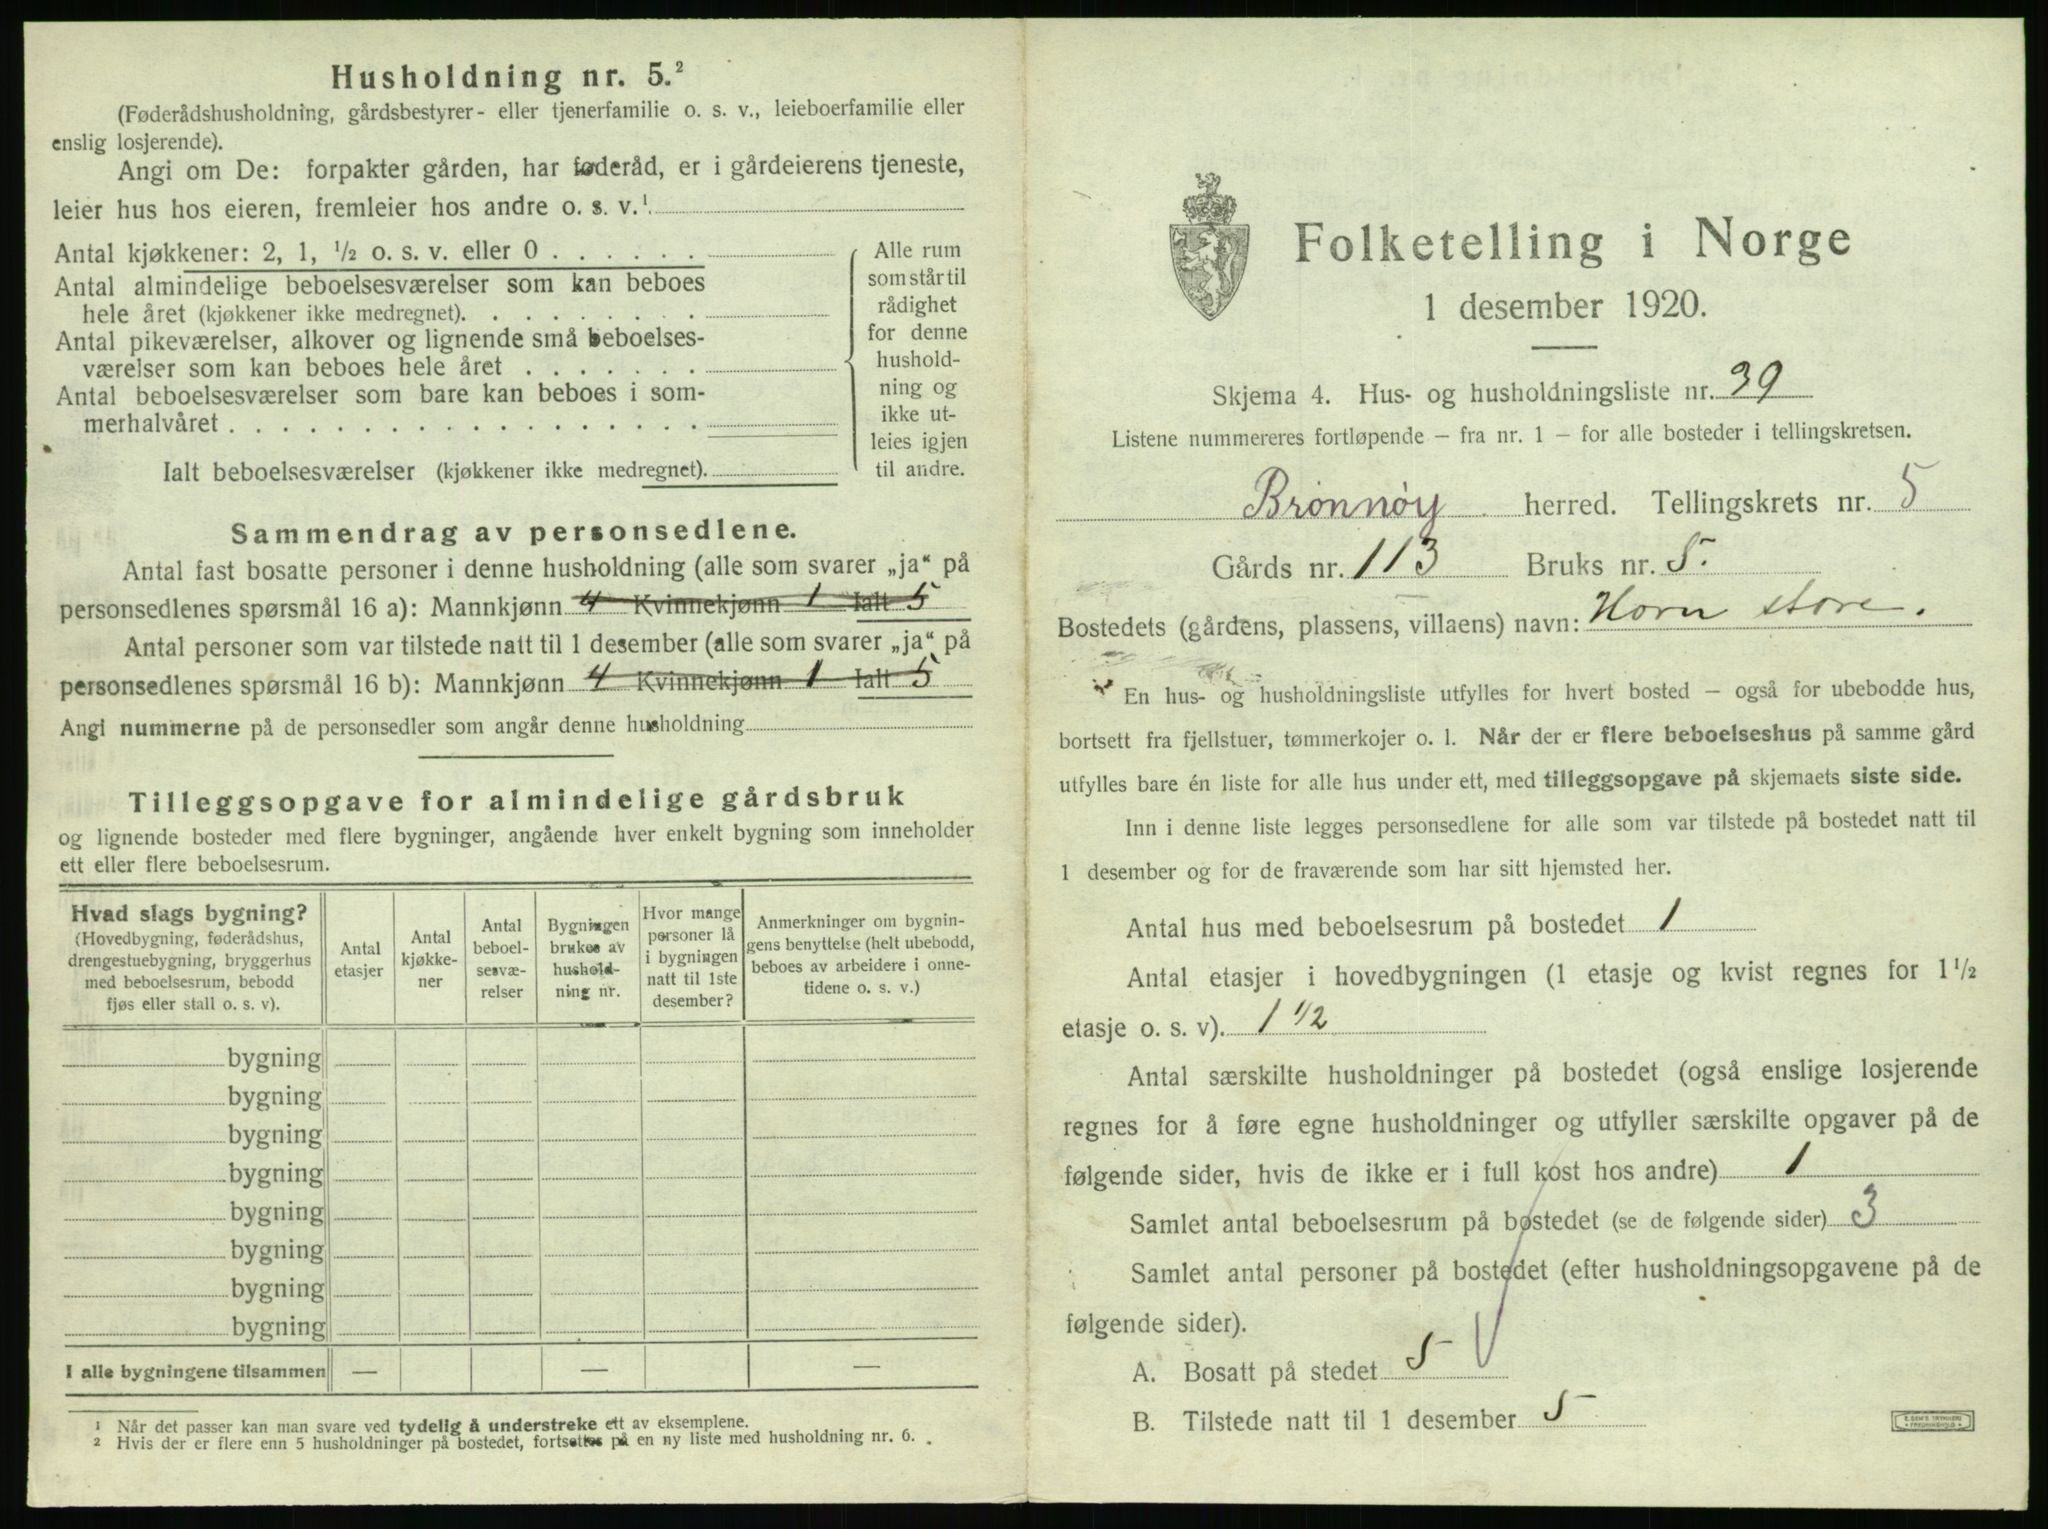 Husholdning nr. 5.²
(Føderådshusholdning, gårdsbestyrer- eller tjenerfamilie o. s. v., leieboerfamilie eller
enslig losjerende).
Angi om De: forpakter gården, har føderåd, er i gårdeierens tjeneste,
leier hus hos eieren, fremleier hos andre o. s. v.¹
Antal kjøkkener: 2, 1, ½ o. s. v. eller 0 . . . . . .
Antal almindelige beboelsesværelser som kan beboes
hele året (kjøkkener ikke medregnet). . . . . . . . .
Antal pikeværelser, alkover og lignende små beboelses-
værelser som kan beboes hele året . . . . . . .
Antal beboelsesværelser som bare kan beboes i som-
merhalvåret . . . . . . . . . . . . . . . . . .
Ialt beboelsesværelser (kjøkkener ikke medregnet).
Alle rum
som står til
rådighet
for denne
hushold-
ning og
ikke ut-
leies igjen
til andre.
Sammendrag av personsedlene.
Antal fast bosatte personer i denne husholdning (alle som svarer „ja“ på
personsedlenes spørsmål 16 a): Mannkjønn 4 Kvinnekjønn 1 Ialt 5
Antal personer som var tilstede natt til 1 desember (alle som svarer „ja“ på
personsedlenes spørsmål 16 b): Mannkjønn 4 Kvinnekjønn 1 Ialt 5
Angi nummerne på de personsedler som angår denne husholdning
Tilleggsopgave for almindelige gårdsbruk
og lignende bosteder med flere bygninger, angående hver enkelt bygning som inneholder
ett eller flere beboelsesrum.
Hvad slags bygning?
(Hovedbygning, føderådshus,
drengestuebygning, bryggerhus
med beboelsesrum, bebodd
fjøs eller stall o. s. v).
Antal
etasjer
Antal
kjøkke-
ner
Antal
beboel-
sesvæ-
relser
Bygningen
brukes av
hushold-
ning nr.
Hvor mange
personer lå
i bygningen
natt til 1ste
desember?
Anmerkninger om bygnin-
gens benyttelse (helt ubebodd,
beboes av arbeidere i onne-
tidene o. s. v.)
bygning
bygning
bygning
bygning
bygning
bygning
bygning
bygning
I alle bygningene tilsammen — — —
¹ Når det passer kan man svare ved tydelig å understreke ett av eksemplene.
² Hvis der er flere enn 5 husholdninger på bostedet, fortsettes på en ny liste med husholdning nr. 6.
Folketelling i Norge
1 desember 1920.
Skjema 4. Hus- og husholdningsliste nr. 39
Listene nummereres fortløpende – fra nr. 1 – for alle bosteder i tellingskretsen.
Brönnöy herred. Tellingskrets nr. 5
Gårds nr. 113 Bruks nr. 5.
Bostedets (gårdens, plassens, villaens) navn: Horn store.
En hus- og husholdningsliste utfylles for hvert bosted – også for ubebodde hus,
bortsett fra fjellstuer, tømmerkojer o. l. Når der er flere beboelseshus på samme gård
utfylles bare én liste for alle hus under ett, med tilleggsopgave på skjemaets siste side.
Inn i denne liste legges personsedlene for alle som var tilstede på bostedet natt til
1 desember og for de fraværende som har sitt hjemsted her.
Antal hus med beboelsesrum på bostedet 1
Antal etasjer i hovedbygningen (1 etasje og kvist regnes for 1½
etasje o. s. v). 1 ½
Antal særskilte husholdninger på bostedet (også enslige losjerende
regnes for å føre egne husholdninger og utfyller særskilte opgaver på de
følgende sider, hvis de ikke er i full kost hos andre) 1
Samlet antal beboelsesrum på bostedet (se de følgende sider) 3
Samlet antal personer på bostedet (efter husholdningsopgavene på de
følgende sider).
A. Bosatt på stedet 5
B. Tilstede natt til 1 desember 5